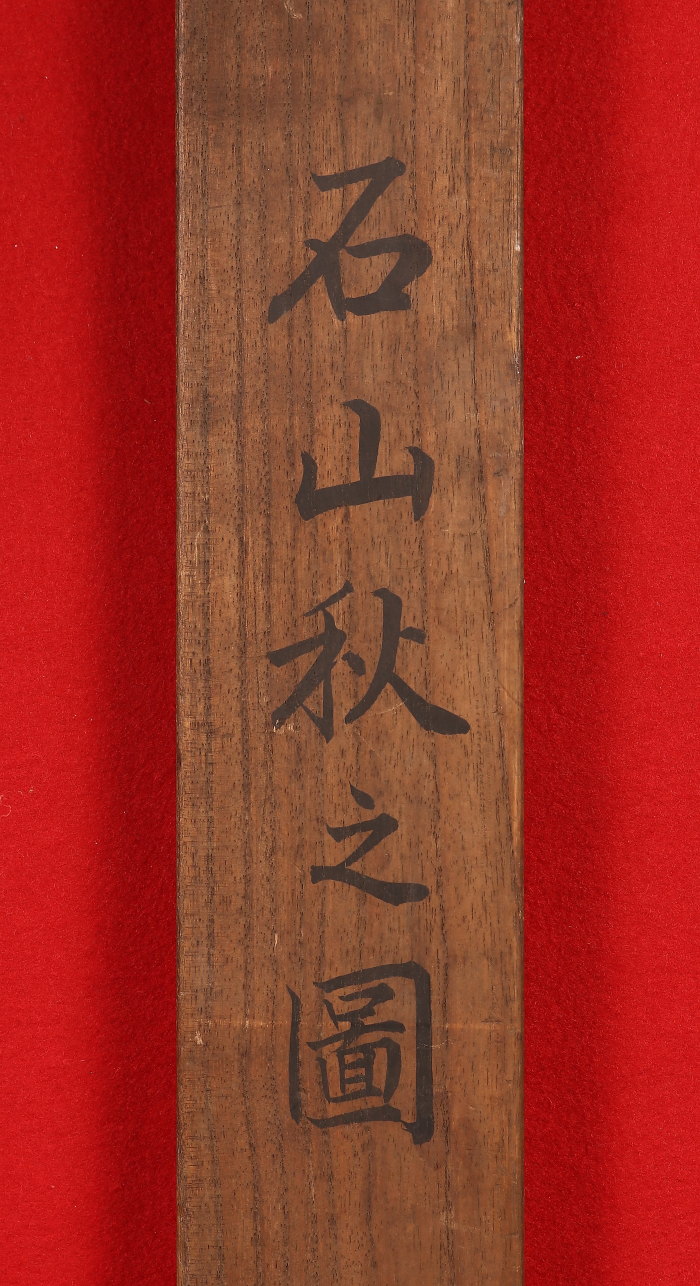 石山秋之圖